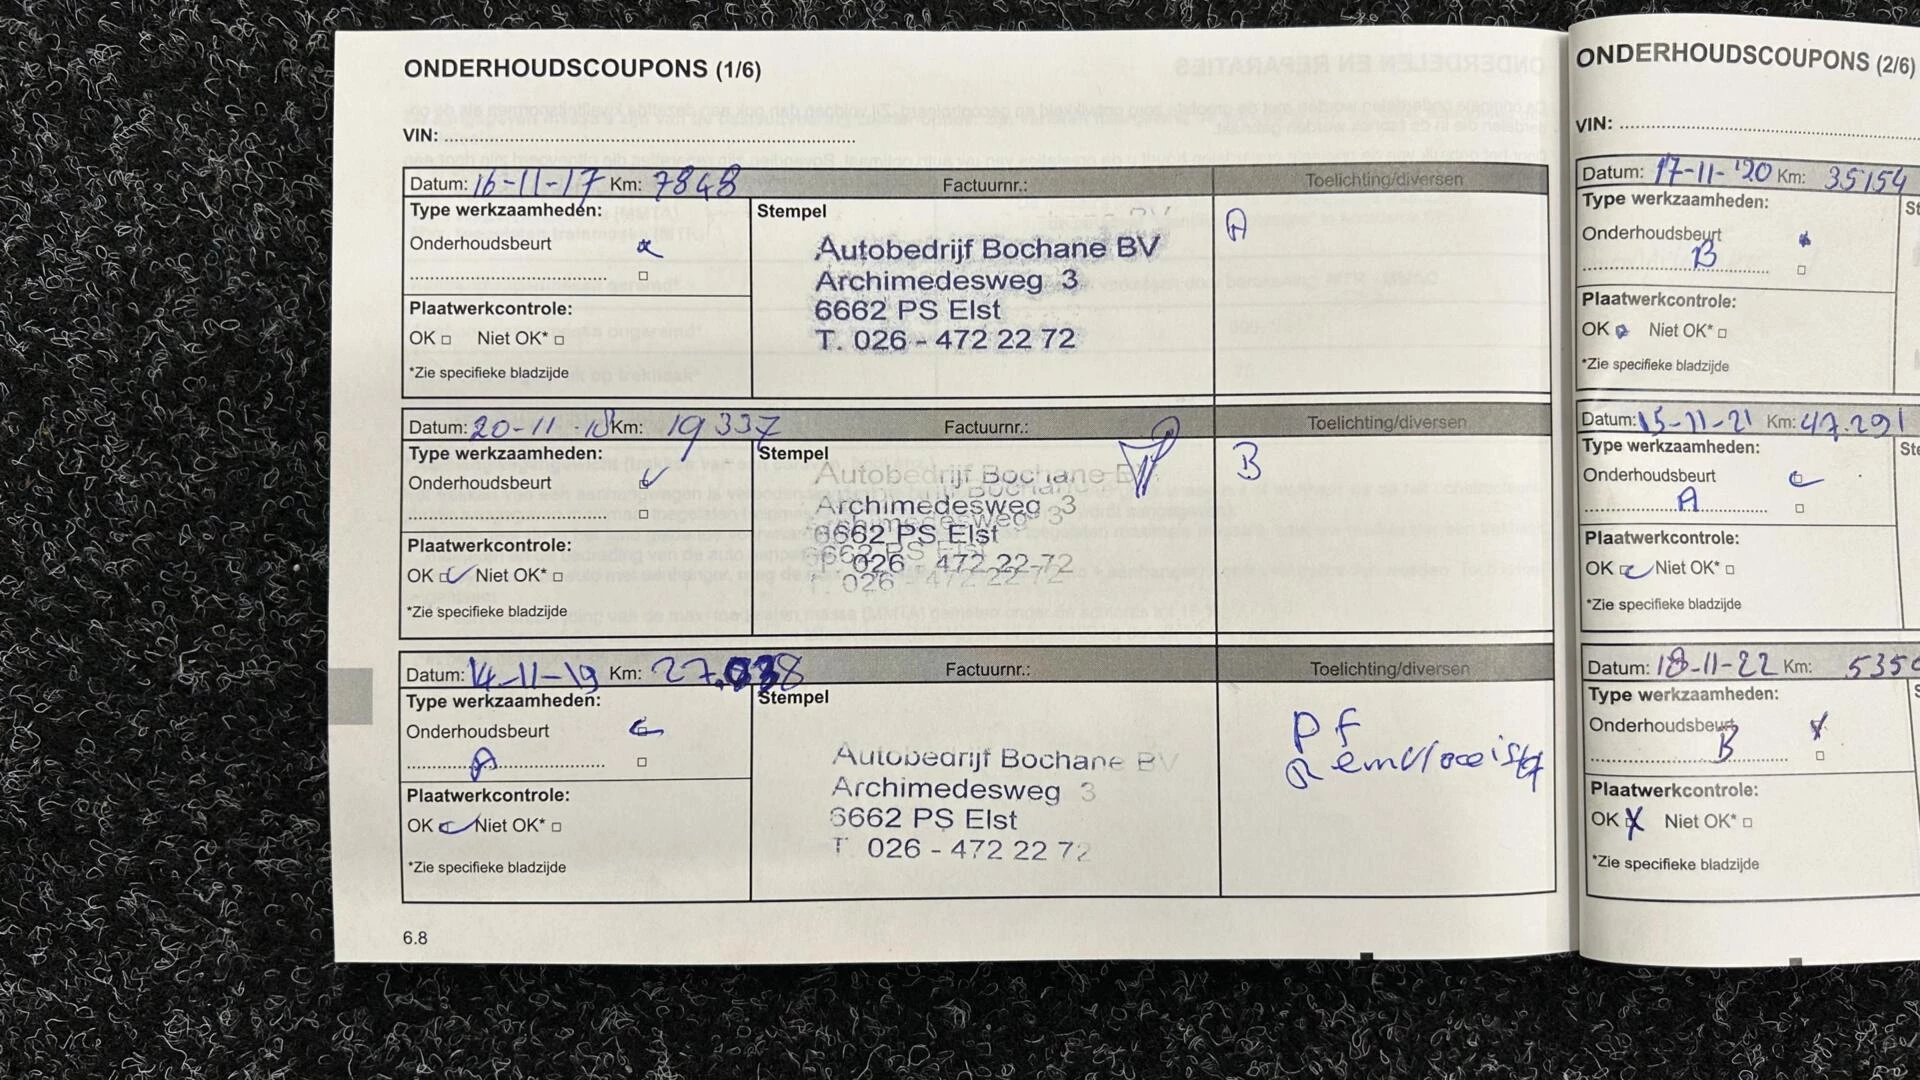 ONDERHOUDSCOUPONS (1/6)
VIN:
Datum: 16-11-17 Km: 7848 Factuurnr.: Toelichting/diversen
Type werkzaamheden: Stempel
Onderhoudsbeurt
Autobedrijf Bochane BV
Archimedesweg 3
6662 PS Elst
T. 026 - 472 22 72
A
Plaatwerkcontrole:
OK Niet OK*
*Zie specifieke bladzijde
Datum: 20-11-18 Km: 19337 Factuurnr.: Toelichting/diversen
Type werkzaamheden: Stempel
Onderhoudsbeurt
Autobedrijf Bochane BV
Archimedesweg 3
6662 PS Elst
T. 026 - 472 22 72
B
Plaatwerkcontrole:
OK Niet OK*
*Zie specifieke bladzijde
Datum: 14-11-19 Km: 27.038 Factuurnr.: Toelichting/diversen
Type werkzaamheden: Stempel
Onderhoudsbeurt
A
Autobedrijf Bochane BV
Archimedesweg 3
6662 PS Elst
T 026 - 472 22 72
Pf
Remvloeistof
Plaatwerkcontrole:
OK Niet OK*
*Zie specifieke bladzijde
6.8
ONDERHOUDSCOUPONS (2/6)
VIN:
Datum: 17-11-'20 Km: 35154
Type werkzaamheden:
Onderhoudsbeurt
B
Plaatwerkcontrole:
OK Niet OK*
*Zie specifieke bladzijde
Datum: 15-11-21 Km: 47.291
Type werkzaamheden:
Onderhoudsbeurt
A
Plaatwerkcontrole:
OK Niet OK*
*Zie specifieke bladzijde
Datum: 18-11-22 Km:
Type werkzaamheden:
Onderhoudsbeurt
B
Plaatwerkcontrole:
OK Niet OK*
*Zie specifieke bladzijde